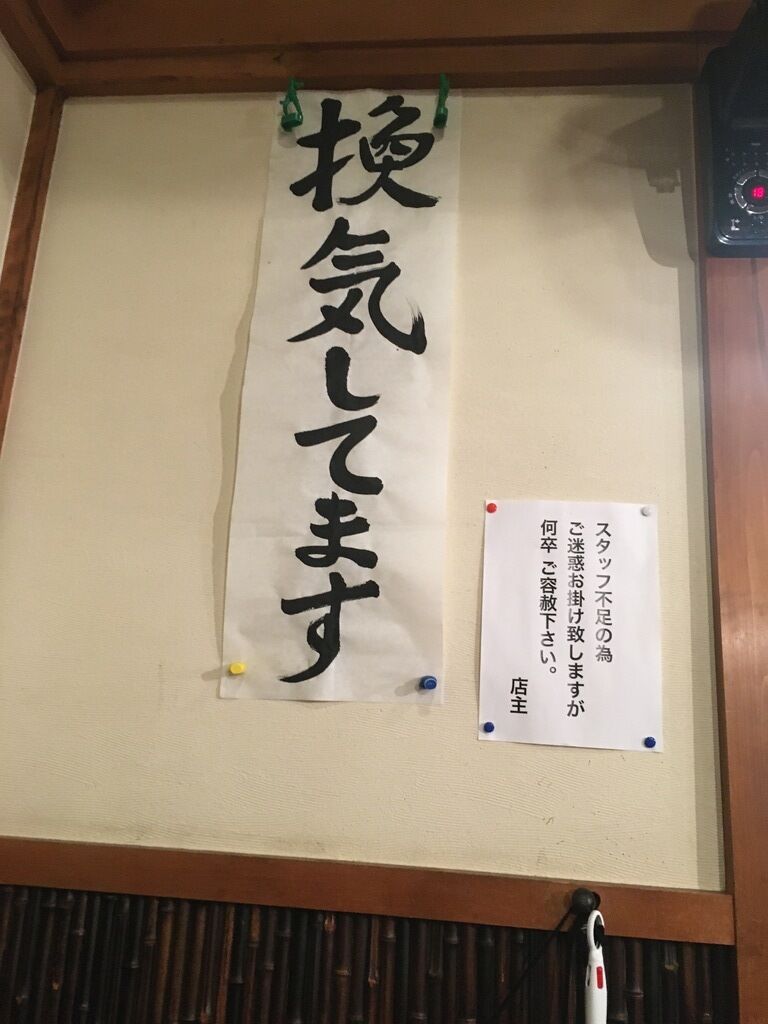 換気してます
スタッフ不足の為
ご迷惑お掛け致しますが
何卒 ご容赦下さい。
店主
18